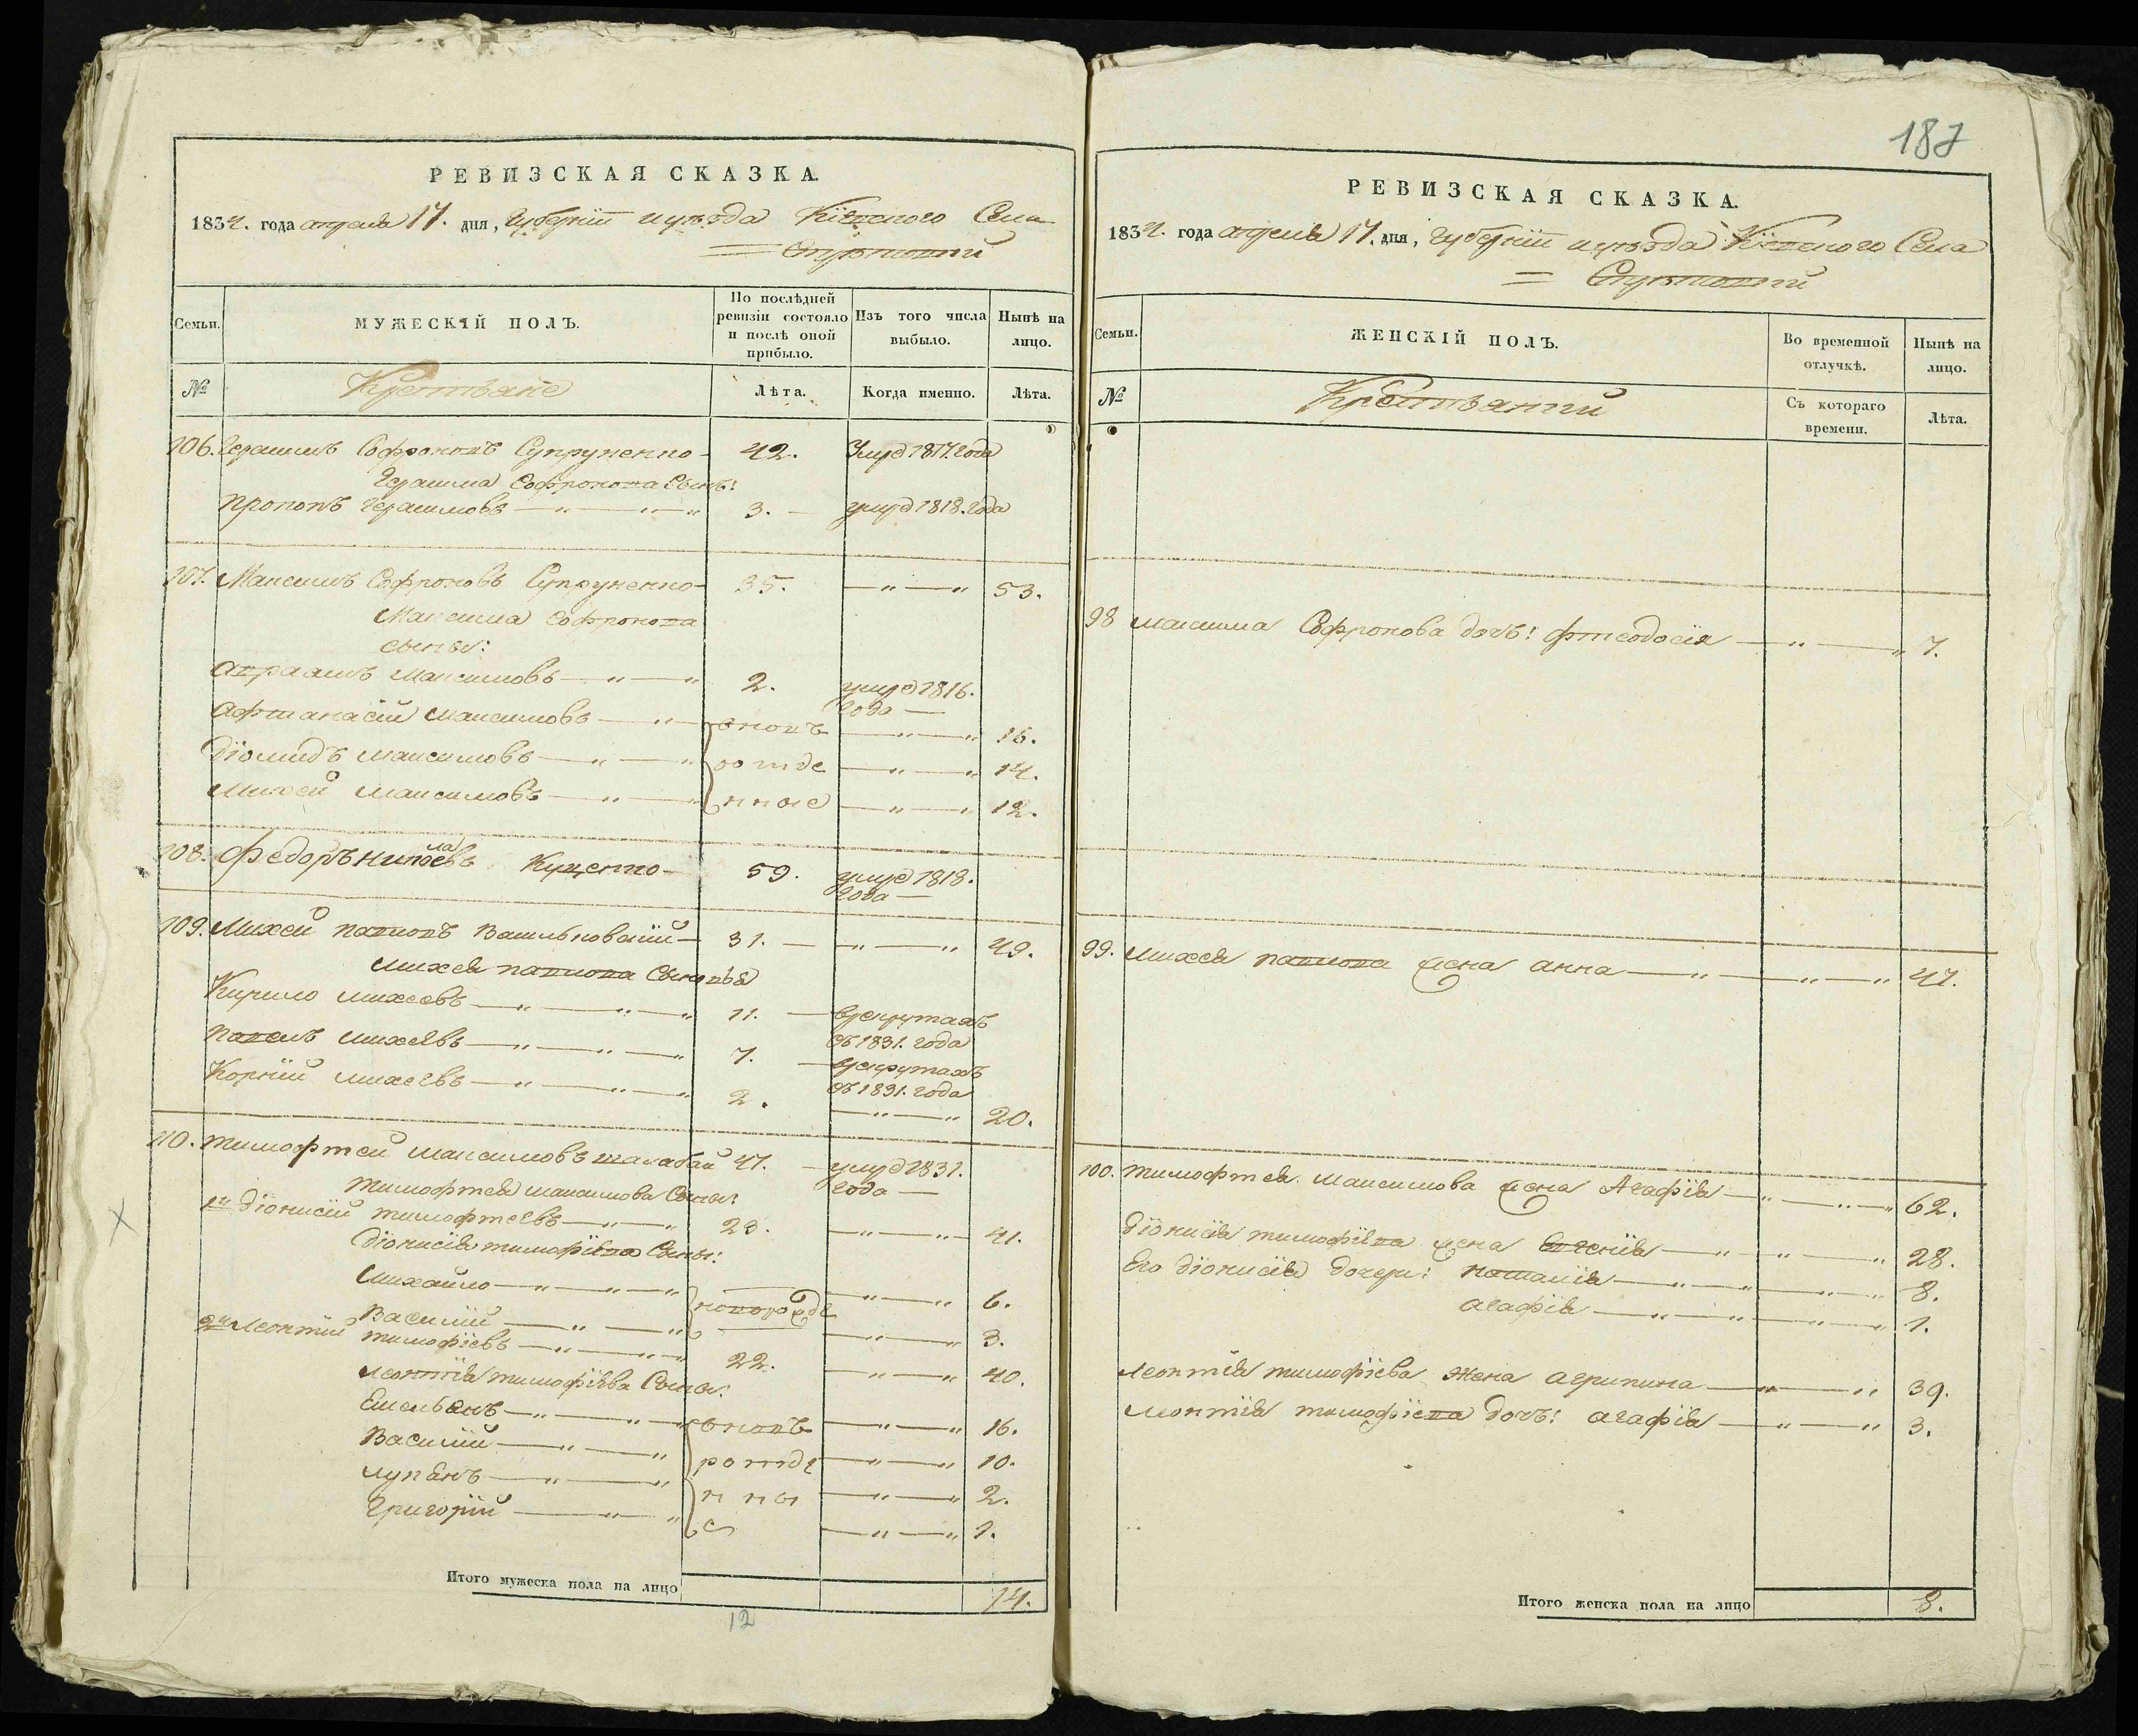 187
РЕВИЗСКАЯ СКАЗКА.
1834. года апреля 17. дня, Губернїи и уѣзда Кїевского Села
Крестьяне
Семьи. МУЖЕСКІЙ ПОЛЪ. По послѣдней ревизіи состояло и послѣ оной прибыло. Изъ того числа выбыло. Нынѣ на лицо.
№ Лѣта. Когда именно. Лѣта.
106. Герасимъ Софроновъ Супруненко 42. Умре 1817. года
Герасима Софронова Сынъ:
Прокопъ Герасимовъ 3. умре 1818. года
107. Максимъ Софроновъ Супруненко 35. 53.
Максима Софронова
сыны:
Авраамъ Максимовъ 2. умре 1816.
года
Афтанасїй Максимовъ вновъ 16.
Дїомидъ Максимовъ рожде 14.
Михей Максимовъ нные 12.
108. Федоръ Куценко 59. умре 1818.
года
109. Михей Павловъ Васильковскїй 31. 49.
Михея Павлова Сыновья
Кирило Михеевъ 11. в рекрутахъ
съ 1831. года
Павелъ Михеевъ 7. в рекрутахъ
съ 1831. года
Корнїй Михеевъ 2. 20.
110. Тимофтей Максимовъ Шалабай 47. умре 1831.
года
Тимофтея Максимова Сыны:
1й Дїонисїй Тимофтеевъ 23. 41.
Дїонисїя Тимофїева Сыны:
Михайло новорожде 6.
Василїй 3.
2й Леонтїй Тимофїевъ 22. 40.
Леонтїя Тимофїева Сыны:
Емельянъ вновъ 16.
Василїй рожде 10.
Лупянъ нны 2.
Григорїй е 1.
Итого мужеска пола на лицо 14.
12
РЕВИЗСКАЯ СКАЗКА.
1834. года апреля 17. дня, Губернїи и уѣзда Кїевского Села
Семьи. ЖЕНСКІЙ ПОЛЪ. Во временной отлучкѣ. Нынѣ на лицо.
№ Съ котораго времени. Лѣта.
98 Максима Софронова дочь: Фтеодосїя 7.
99. Михея Павлова жена Анна 47.
100. Тимофтея Максимова жена Агафїя 62.
Дїонисїя Тимофїева жена Евгенїя 28.
Его Дїонисїя дочери: Наталїя 8.
Агафїя 1.
Леонтїя Тимофїева жена Агрипина 39.
Леонтїя Тимофїева дочь: Агафїя 3.
Итого женска пола на лицо 8.